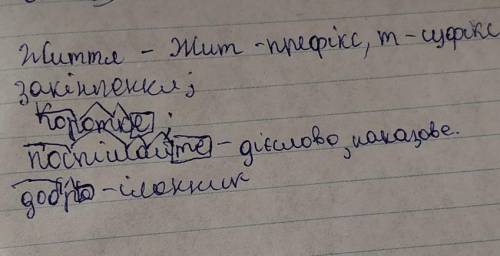 Життя - Жит - префікс, т - суфікс
закінчення;
Коротке;
поспішайте - дієслово, наказове.
добро - іменник